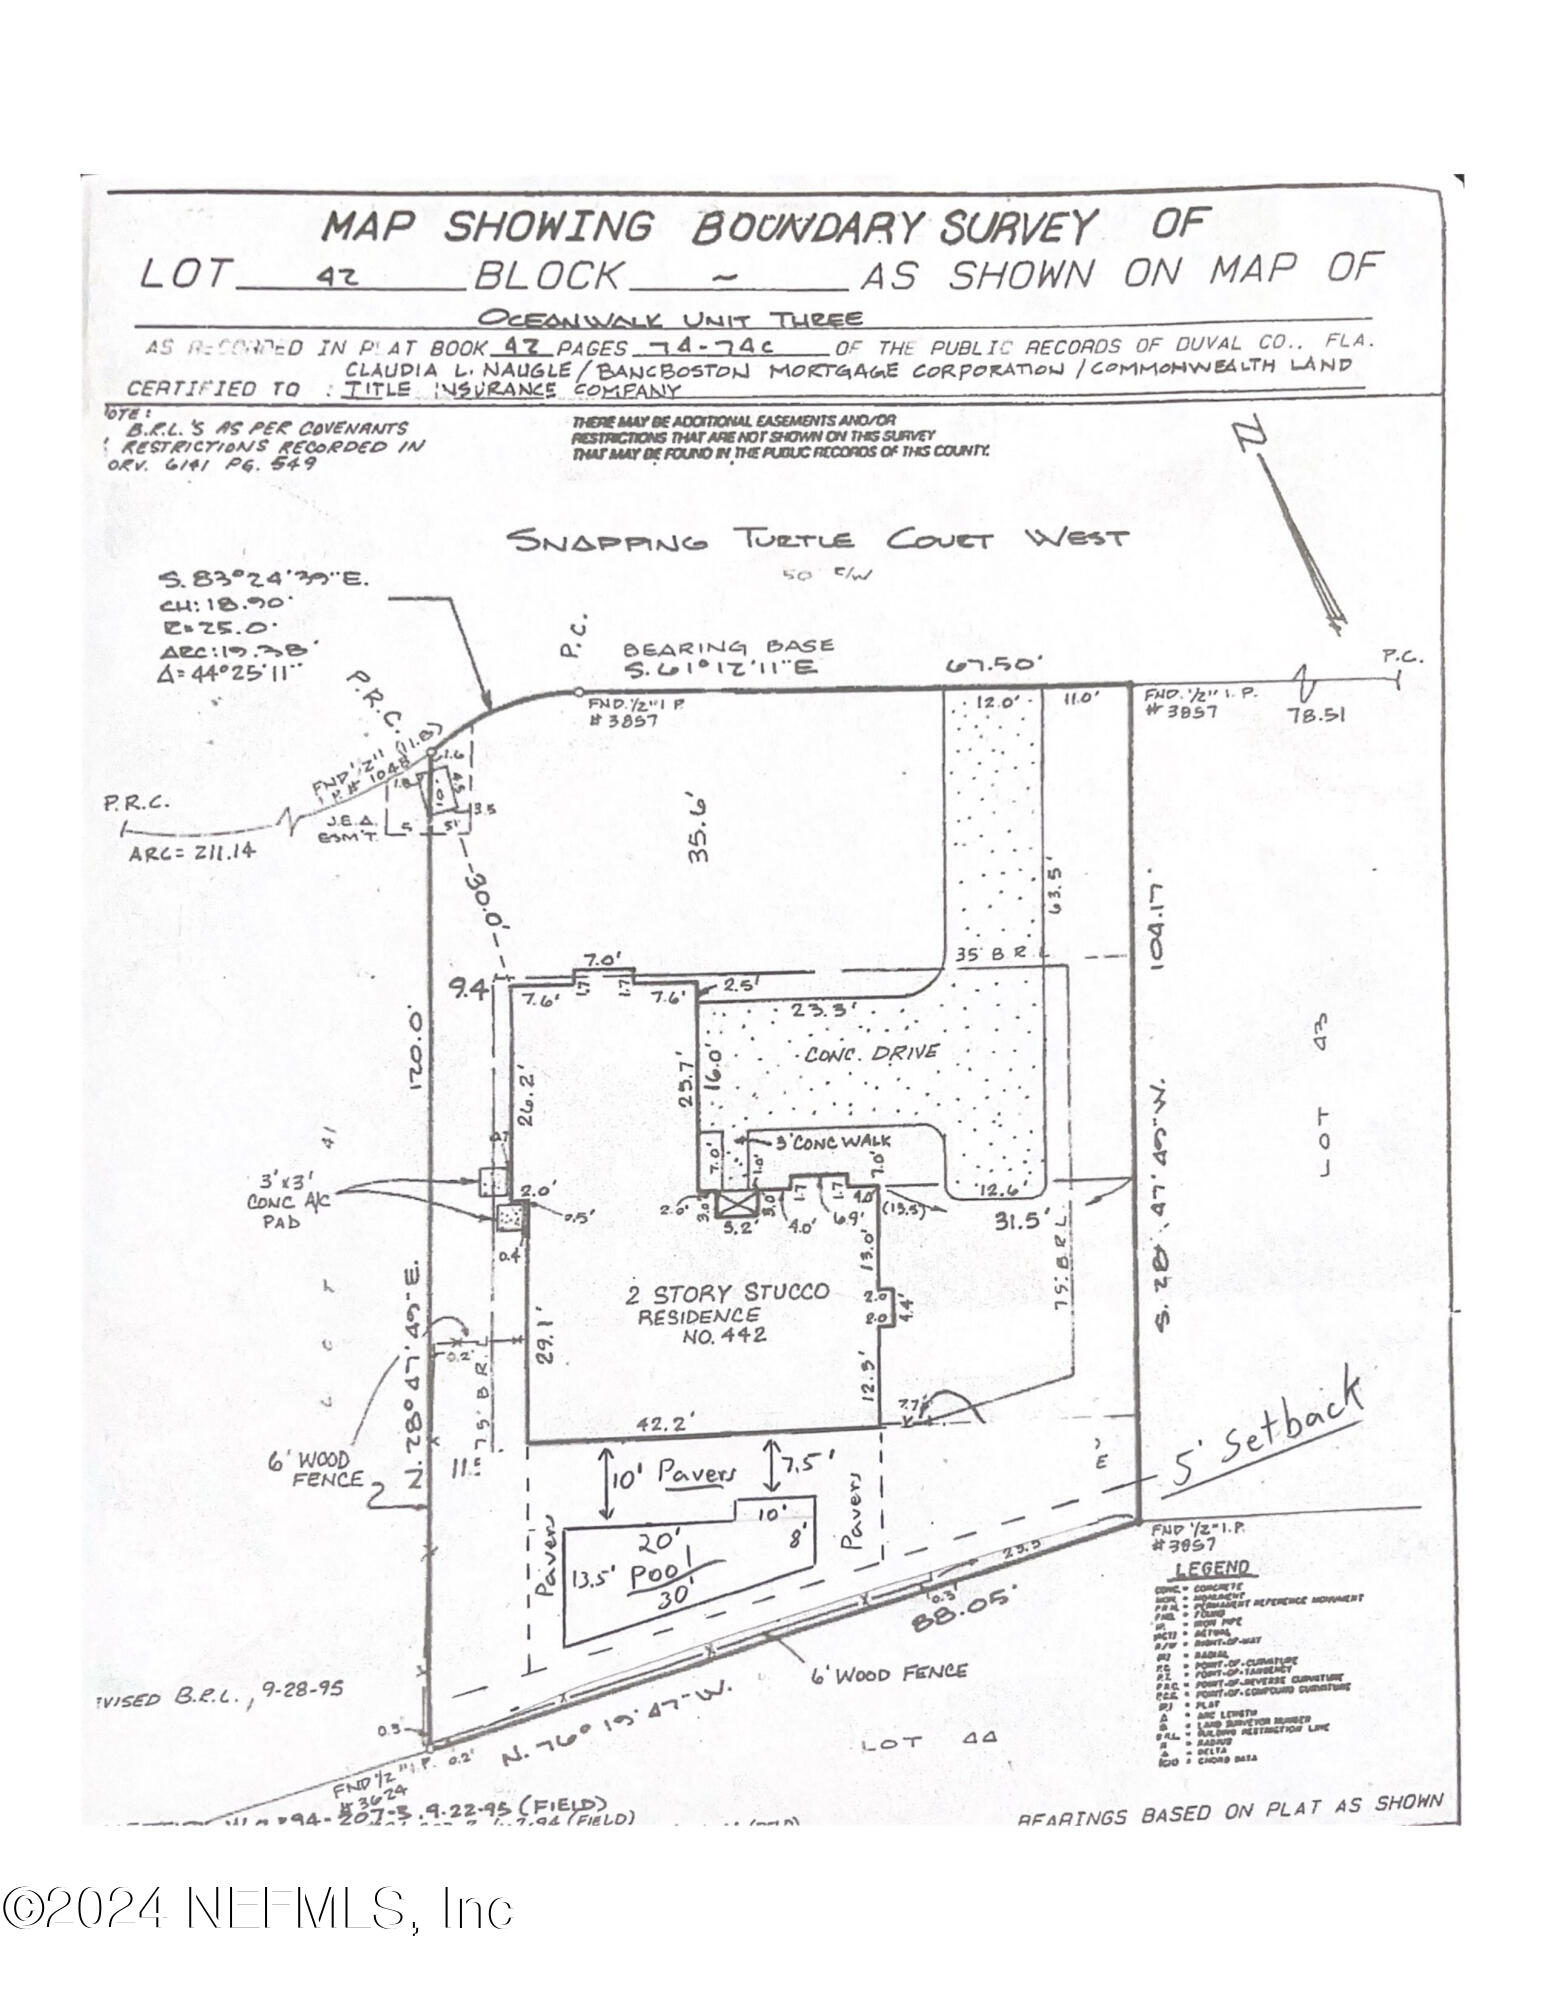 MAP SHOWING BOUNDARY SURVEY OF
LOT 42 BLOCK ~ AS SHOWN ON MAP OF
OCEANWALK UNIT THREE
AS RECORDED IN PLAT BOOK 42 PAGES 74-74C OF THE PUBLIC RECORDS OF DUVAL CO., FLA.
CLAUDIA L. NAUGLE/BANCBOSTON MORTGAGE CORPORATION/COMMONWEALTH LAND
CERTIFIED TO : TITLE INSURANCE COMPANY
OTE:
B.R.L.'S AS PER COVENANTS
RESTRICTIONS RECORDED IN
ORV. 6141 PG. 549
THERE MAY BE ADDITIONAL EASEMENTS AND/OR
RESTRICTIONS THAT ARE NOT SHOWN ON THIS SURVEY
THAT MAY BE FOUND IN THE PUBLIC RECORDS OF THIS COUNTY.
N
SNAPPING TURTLE COURT WEST
50' R/W
S. 83°24'39"E.
CH: 18.90'
R=25.0'
ARC: 19.38'
Δ=44°25'11"
P.C.
BEARING BASE
S. 61°12'11"E
67.50'
P.C.
P.R.C.
FND. 1/2" I.P.
# 3857
12.0'
11.0'
FND. 1/2" I.P.
# 3857
78.51
FND 1/2"
I.P.# 1048
(11.8')
1.6
4.5
10'
3.5
P.R.C.
ARC= 211.14
J.E.A.
ESM'T.
5
5'
30.0'
35.6'
63.5'
104.17'
35' B R L
9.4
7.0'
7.6'
1.7
1.7
7.6'
2.5'
23.3'
CONC. DRIVE
120.0'
26.2'
25.7'
16.0'
LOT 43
LOT 41
3'x3'
CONC A/C
PAD
0.7
2.0'
0.5'
0.4
7.0'
3' CONC WALK
1.0'
7.0'
2.0'
3.0'
5.2'
3.0'
4.0'
1.7
1.7
6.9'
4.0
(13.5)
12.6'
31.5'
13.0'
7.5' B.R.L.
S. 28° 47' 49" W.
2 STORY STUCCO
RESIDENCE
NO. 442
2.0
2.0
4.4'
29.1'
12.5'
N. 28° 47' 49" E.
0.2'
7.5' B.R.L.
42.2'
7.7'
6' WOOD
FENCE
11.
10' Pavers
7.5'
5' Setback
Pavers
20'
10'
8'
Pavers
13.5'
Pool
30'
FND 1/2" I.P.
#3857
25.5
0.3'
88.05'
6' WOOD FENCE
LEGEND
CONC. = CONCRETE
MON. = MONUMENT
P.R.M. = PERMANENT REFERENCE MONUMENT
FND. = FOUND
I.P. = IRON PIPE
(ACT) = ACTUAL
R/W = RIGHT-OF-WAY
(R) = RADIAL
P.C. = POINT-OF-CURVATURE
P.T. = POINT-OF-TANGENCY
P.R.C. = POINT-OF-REVERSE CURVATURE
P.C.C. = POINT-OF-COMPOUND CURVATURE
(P) = PLAT
A = ARC LENGTH
= LAND SURVEYOR NUMBER
B.R.L. = BUILDING RESTRICTION LINE
R = RADIUS
Δ = DELTA
(CH) = CHORD DATA
VISED B.R.L., 9-28-95
0.3'
0.2'
N. 76° 19' 47" W.
LOT 44
FND 1/2" I.P.
# 3624
94-307-3, 9-22-95 (FIELD)
94 (FIELD)
BEARINGS BASED ON PLAT AS SHOWN
©2024 NEFMLS, Inc